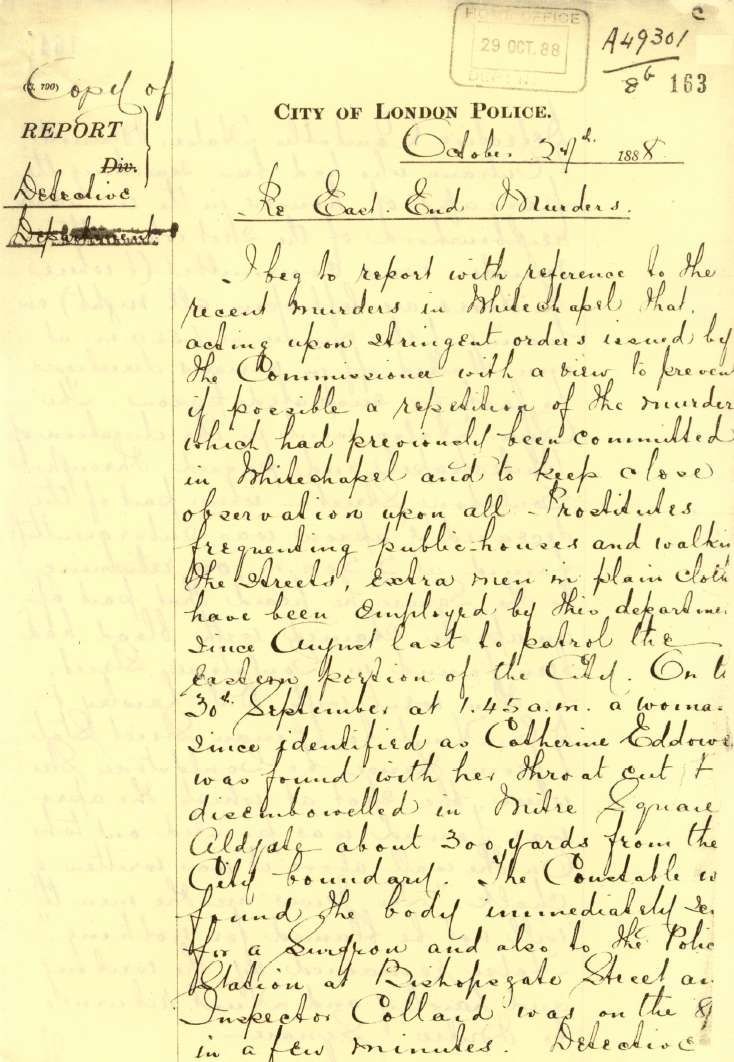 C
HOME OFFICE
29 OCT. 88
DEPT. No.
A49301
8b
163
Copy of
REPORT
Div.
Detective
Department.
CITY OF LONDON POLICE.
October 27th. 1888.
Re East End Murders.
I beg to report with reference to the
recent murders in Whitechapel that,
acting upon stringent orders issued by
the Commissioner with a view to preven
if possible a repetition of the murder
which had previously been committed
in Whitechapel and to keep close
observation upon all Prostitutes
frequenting public-houses and walkin
the streets, extra men in plain cloth
have been employed by this departmen
since August last to patrol the
Eastern portion of the City. On t
30th. September at 1.45 a.m. a woma
since identified as Catherine Eddowe
was found with her throat cut &
disembowelled in Mitre Square
Aldgate about 300 yards from the
City boundary. The Constable w
found the body immediately se
for a Surgeon and also to the Polic
Station at Bishopsgate Street an
Inspector Collard was on the
in a few minutes. Detective